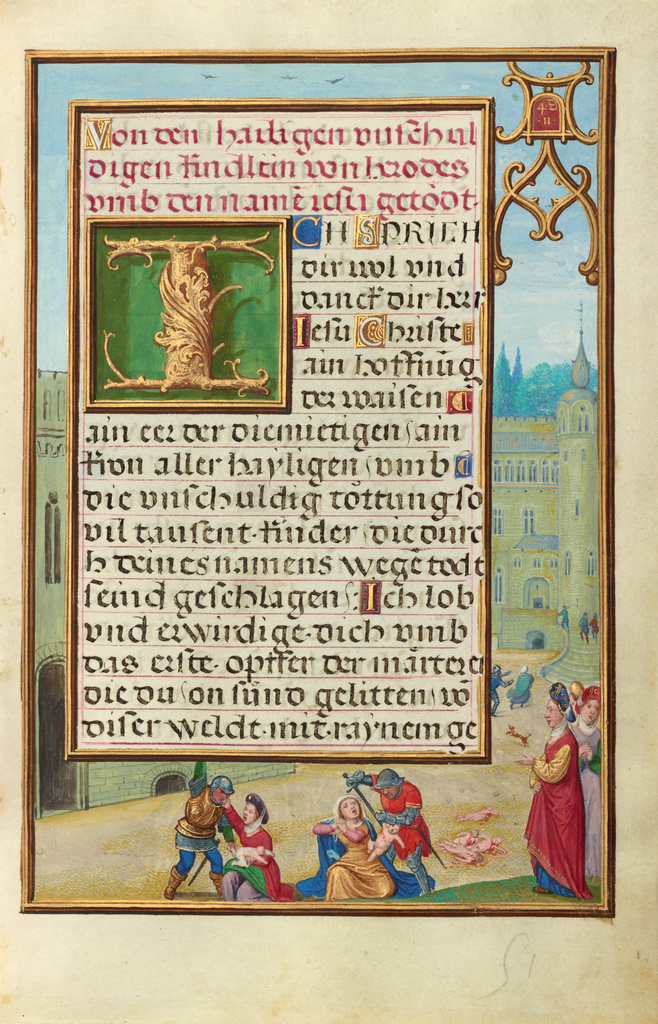 Von den hailigen vnschul
digen kindlein von herodes
vmb den namē iesu getödt.
ICH SPRICH
dir wol vnd
danck dir herr
Iesu Christe
ain hoffnūg
der waisen
ain eer der diemietigen / ain
kron aller hayligen / vmb
die vnschuldig töttung so
vil tausent kinder / die durc
h deines namens wegē todt
seind geschlagen / Ich lob
vnd erwirdige dich vmb
das erste opffer der märterer
die du / on sünd gelitten / vō
diser weldt mit raynem ge